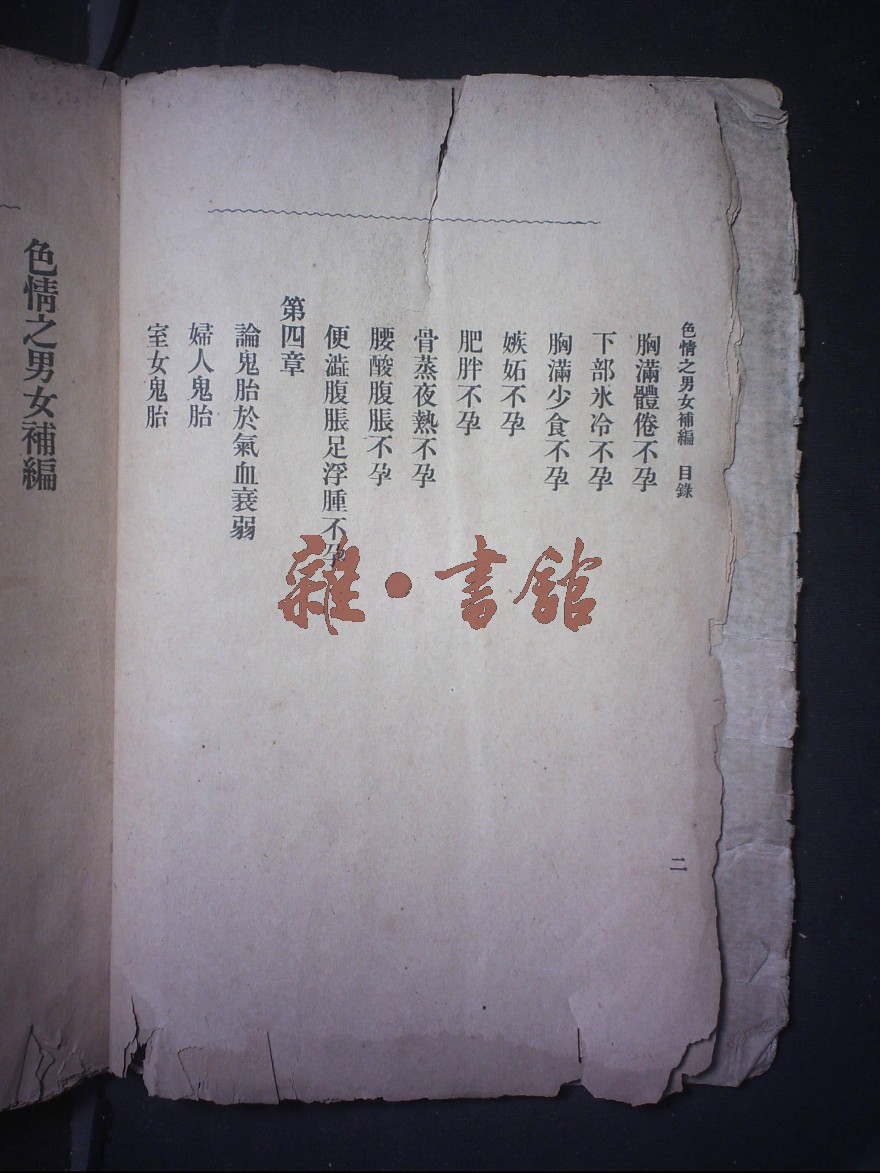 色情之男女補編　目錄
胸滿體倦不孕
下部氷冷不孕
胸滿少食不孕
嫉妬不孕
肥胖不孕
骨蒸夜熱不孕
腰酸腹脹不孕
便澁腹脹足浮腫不孕
第四章
論鬼胎於氣血衰弱
婦人鬼胎
室女鬼胎
二
色情之男女補編
雜·書館